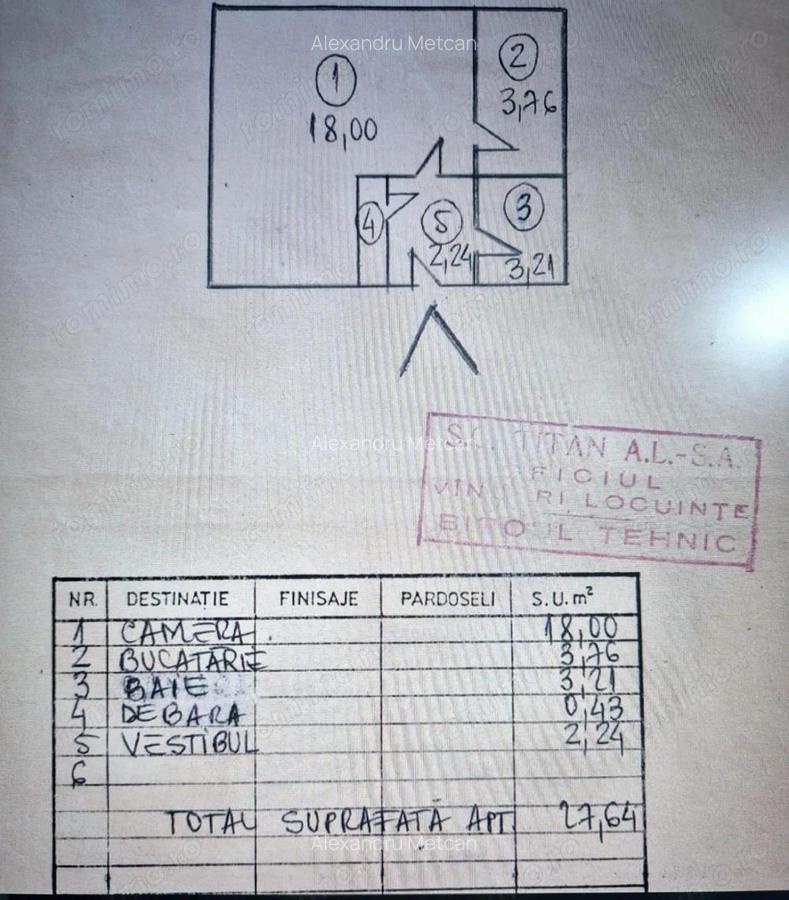 Alexandru Metcan
1
18,00
2
3,76
4
5
2,24
3
3,21
Alexandru Metcan
TITAN A.L.-S.A.
FICIUL
RI LOCUINTE
TEHNIC
NR. DESTINAȚIE FINISAJE PARDOSELI S.U.m²
1 CAMERA 18,00
2 BUCATĂRIE 3,76
3 BAIE 3,21
4 DEBARA 0,43
5 VESTIBUL 2,24
6
TOTAL SUPRAFAȚĂ APT. 27,64
Alexandru Metcan
romimo.ro